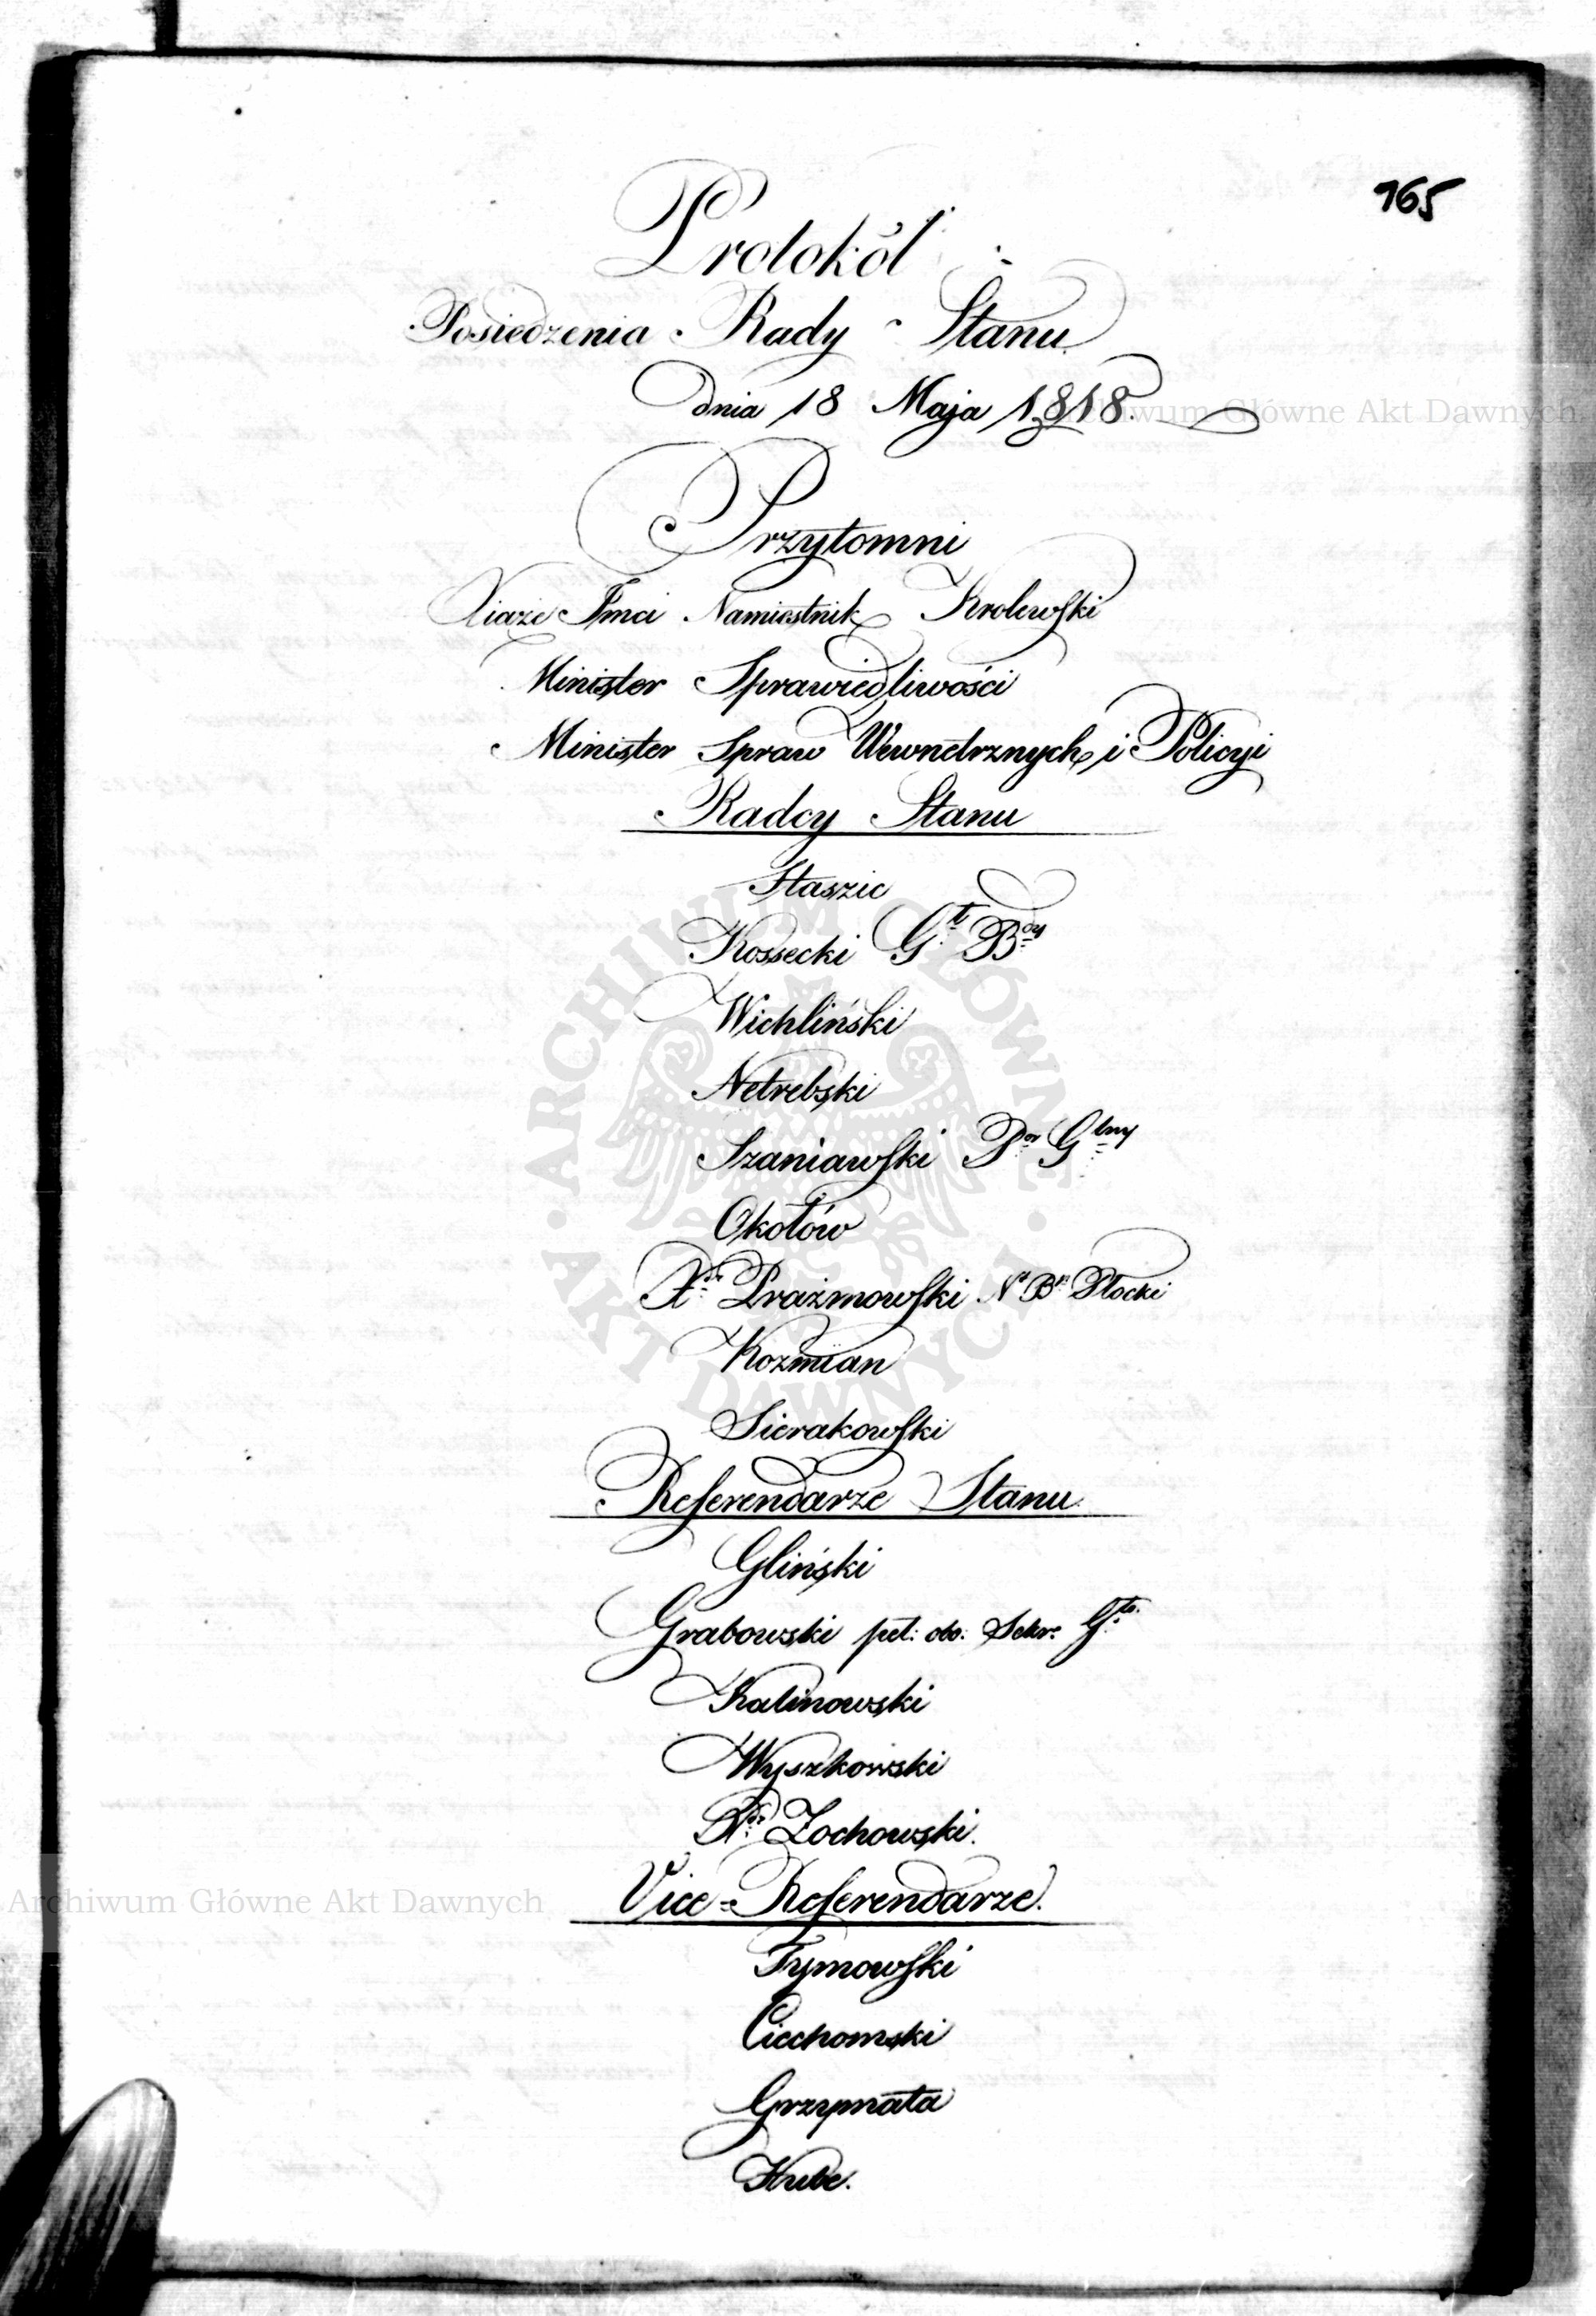 165
Protokół
Posiedzenia Rady Stanu
dnia 18 Maja 1818.
Przytomni
Xiąże Jmci Namiestnik Krolewski
Minister Sprawiedliwości
Minister Spraw Wewnętrznych i Policyi
Radcy Stanu
Staszic
Kossecki G.t B.dy
Wichliński
Netrebski
Szaniawski P.or G.lny
Okołów
X.dz Prażmowski N.t B.p Płocki
Kozmian
Sierakowski
Referendarze Stanu
Gliński
Grabowski peł: obo: Sekr: G.ta
Kalinowski
Wyszkowski
X.dz Zochowski.
Vice=Referendarze.
Tymowski
Ciechomski
Grzymała
Hube.
Archiwum Główne Akt Dawnych
Archiwum Główne Akt Dawnych
ARCHIWUM GŁÓWNE AKT DAWNYCH